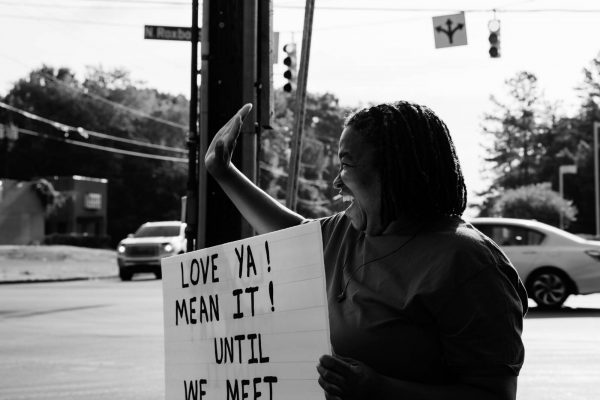 N Roxbo
LOVE YA!
MEAN IT!
UNTIL
WE MEET